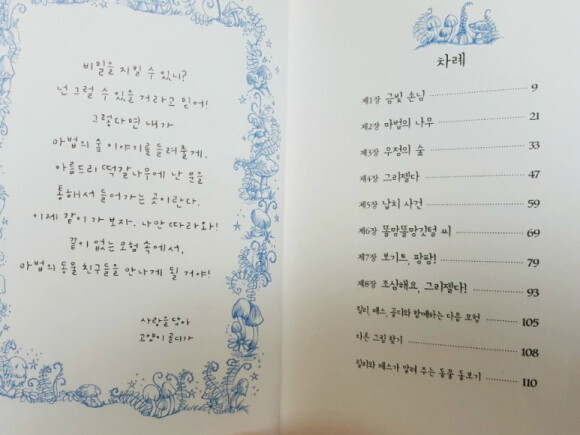 비밀을 지킬 수 있니?
넌 그럴 수 있을 거라고 믿어!
그렇다면 내가
마법의 숲 이야기를 들려줄게.
아름드리 떡갈나무에 난 문을
통해서 들어가는 곳이란다.
이제 같이 가 보자. 나만 따라와!
끝이 없는 모험 속에서,
마법의 동물 친구들을 만나게 될 거야!
사랑을 담아
고양이 골디가
차례
제1장 금빛 손님 9
제2장 마법의 나무 21
제3장 우정의 숲 33
제4장 그리젤다 47
제5장 납치 사건 59
제6장 뚱망뚱망깃털 씨 69
제7장 보기트, 팡팡! 79
제8장 조심해요, 그리젤다! 93
릴리, 제스, 골디와 함께하는 다음 모험 105
다른 그림 찾기 108
릴리와 제스가 알려 주는 동물 돌보기 110